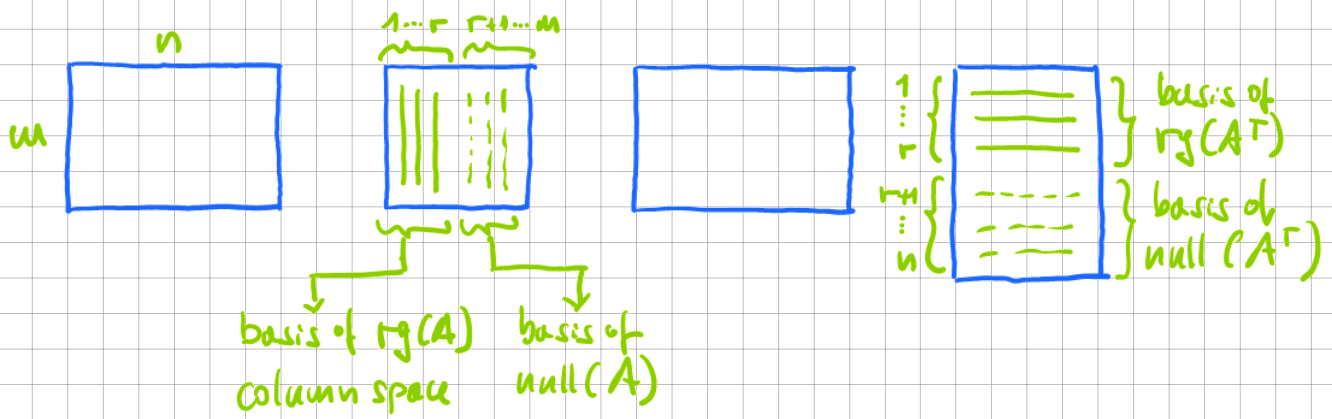 n
m
1...r r+1...m
basis of rg(A)
column space
basis of
null(A)
1
...
r
r+1
...
n
basis of
rg(A^T)
basis of
null(A^T)